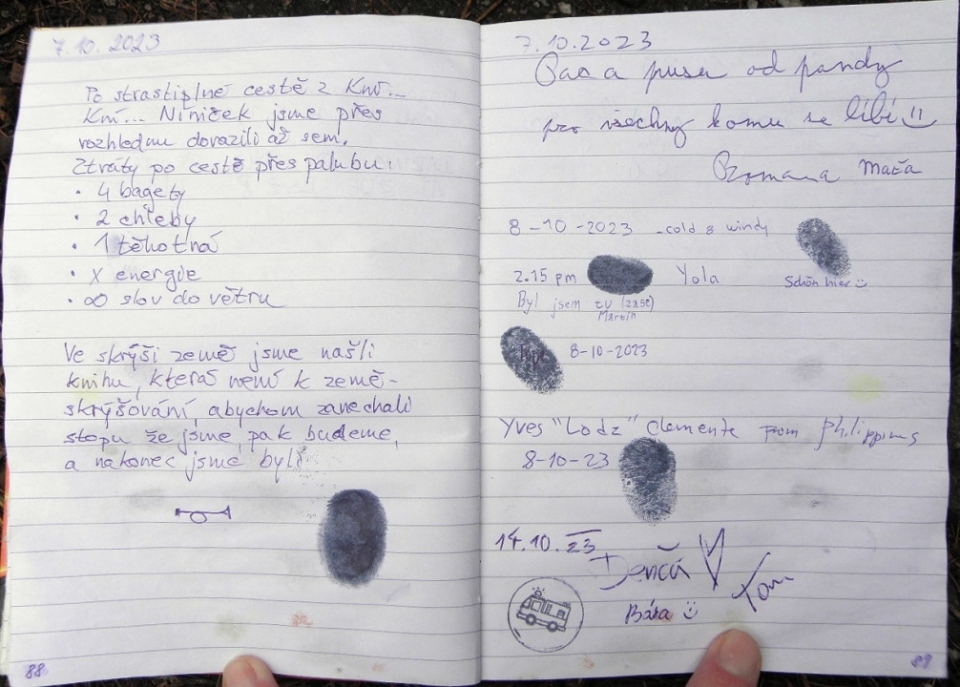 7.10.2023
Po strastiplné cestě z Kní...
Kní... Níniček jsme přes
rozhlednu dorazili až sem.
Ztráty po cestě přes palubu:
• 4 bagety
• 2 chleby
• 1 těhotná
• X energie
• ∞ slov do větru
Ve skrýši země jsme našli
knihu, kteráš není k země-
skrýšování, abychom zanechali
stopu že jsme, pak budeme,
a nakonec jsme byli
88
7.10.2023
Pac a pusu od pandy
pro všechny komu se líbí
Romana Maťa
8-10-2023 -cold & windy
2.15 pm Yola
Schön hier
Byl jsem tu (zase)
Martin
8-10-2023
Yves "Lodz" Clemente from Philippines
8-10-23
14.10.23
Denča
Tom
Bára
89